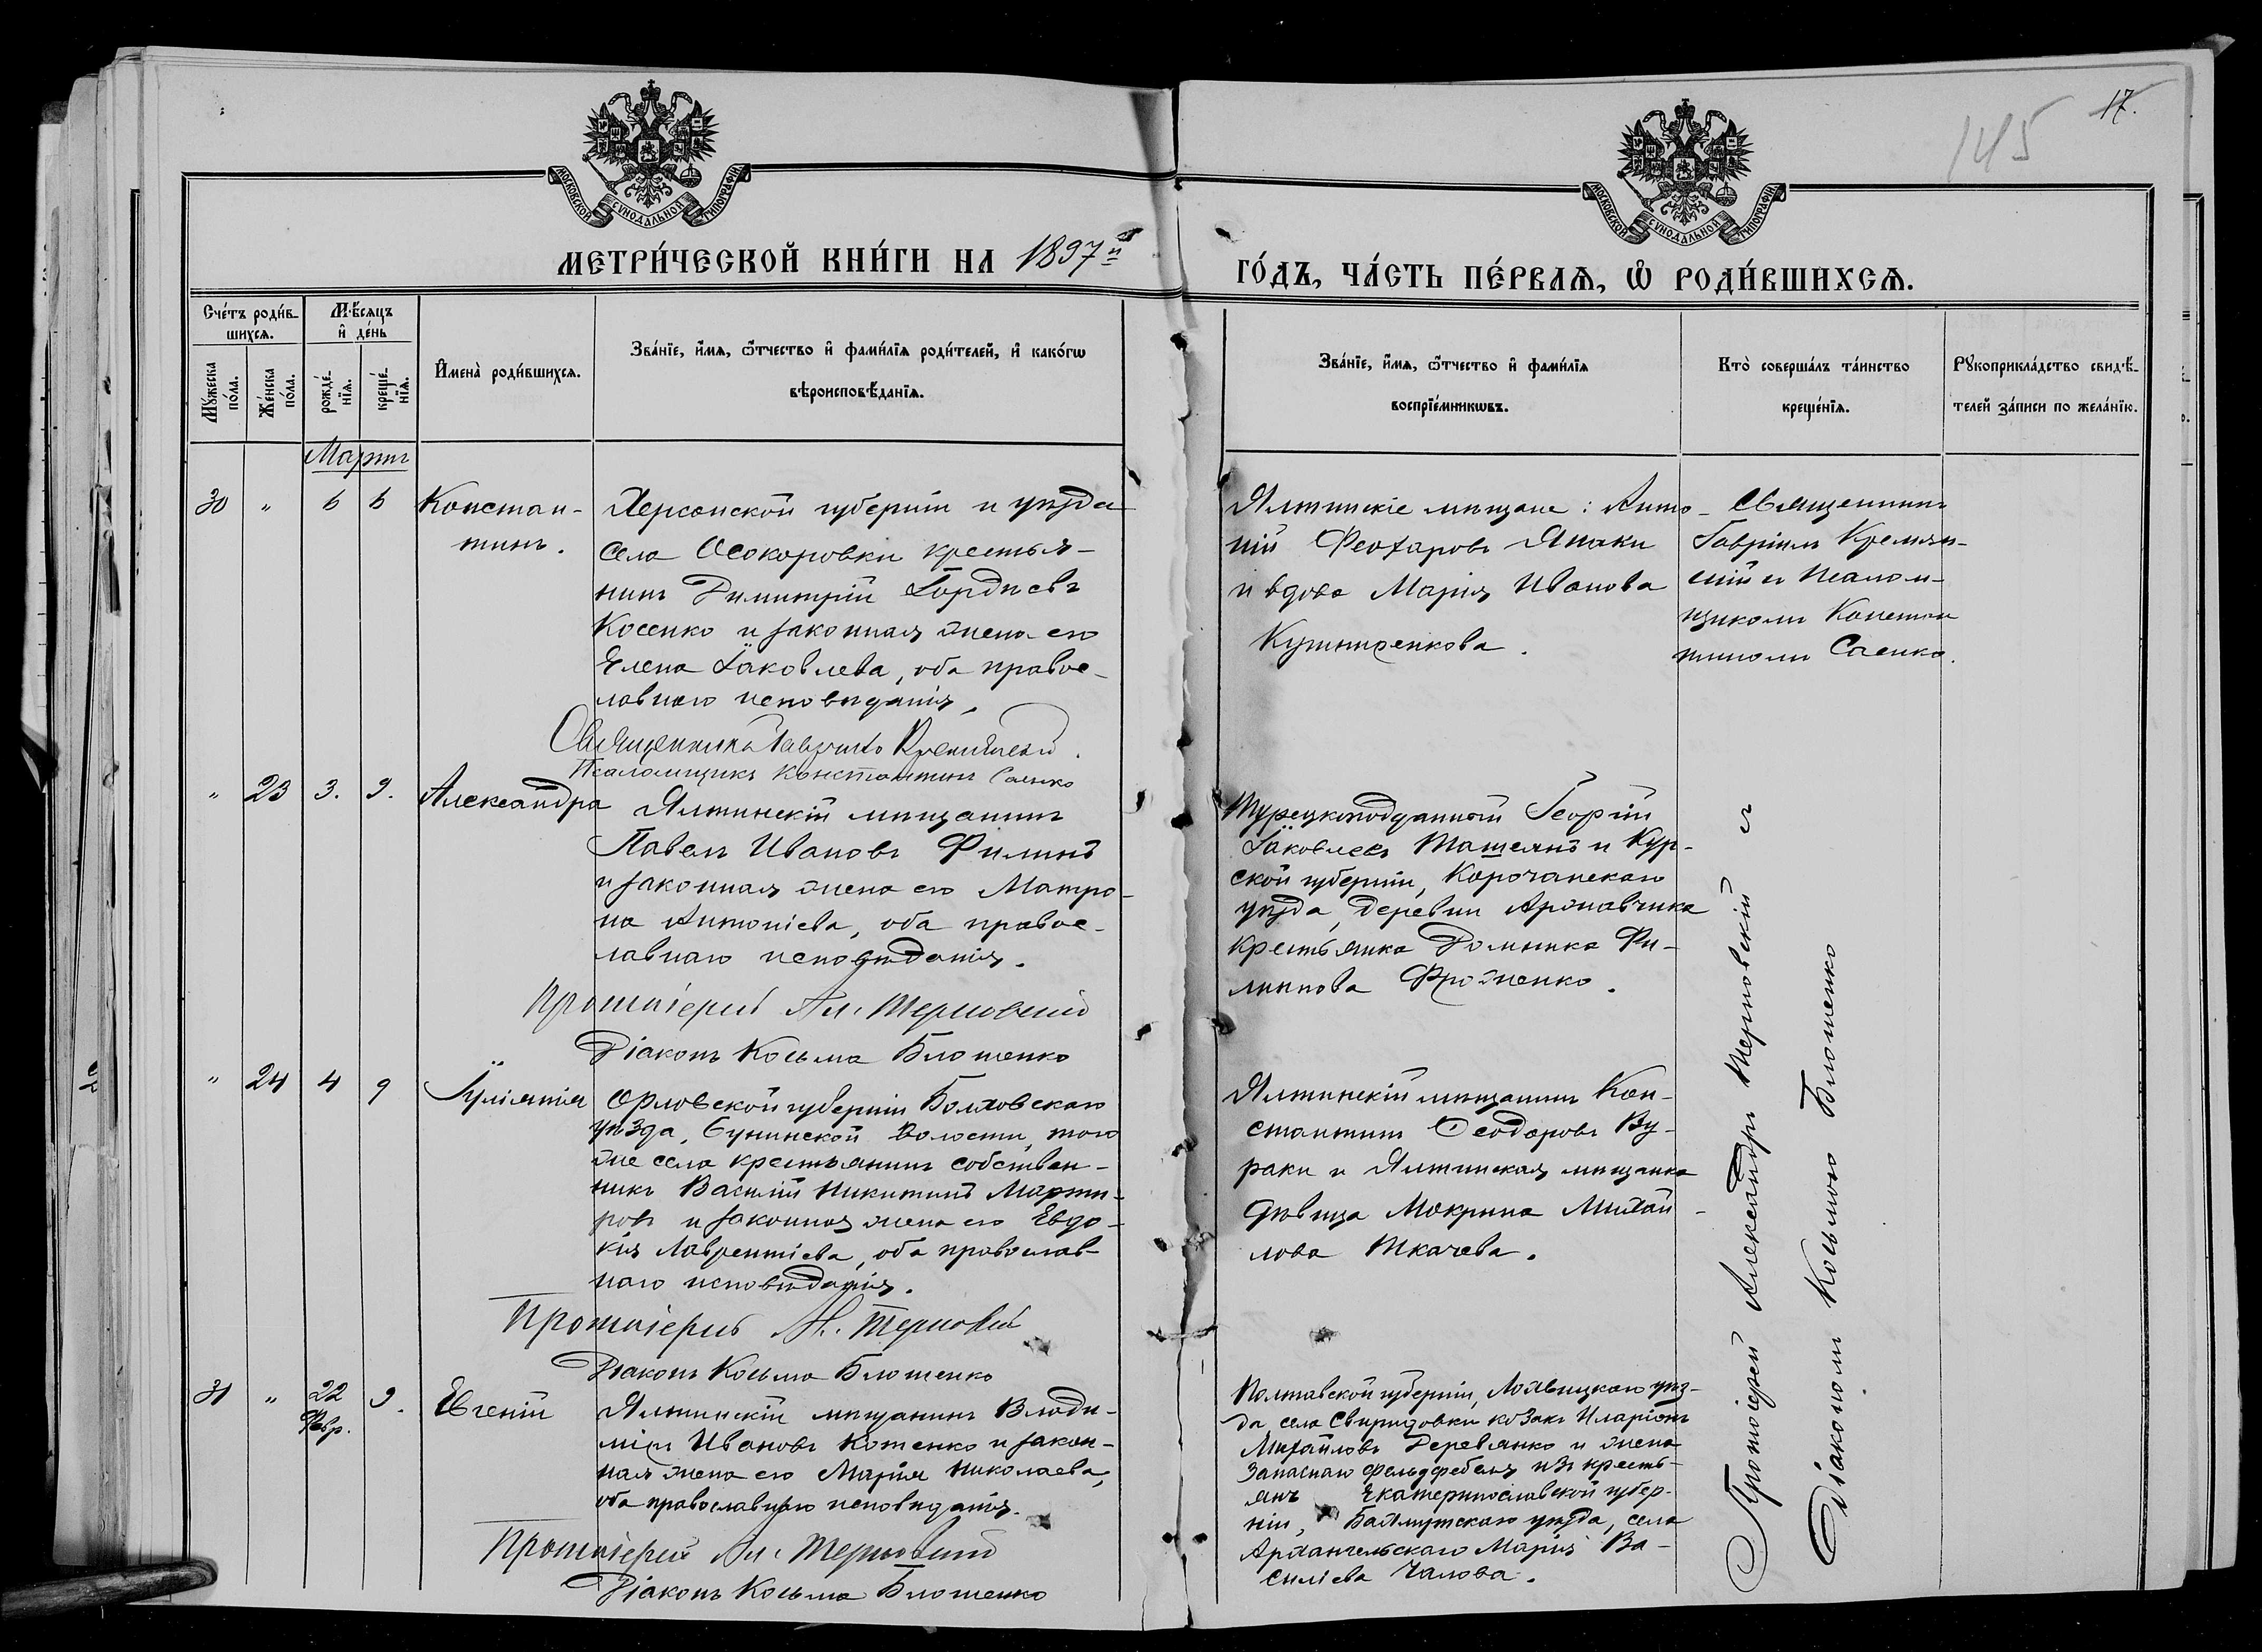 17.
145
МОСКОВСКОЙ СѴНОДАЛЬНОЙ ТИПОГРАФІИ
МОСКОВСКОЙ СѴНОДАЛЬНОЙ ТИПОГРАФІИ
МЕТРИ́ЧЕСКОЙ КНИ́ГИ НА 1897й
ГО́ДЪ, ЧА́СТЬ ПЕ́РВАѦ, Ѡ҆ РОДИ́ВШИХСѦ.
Сче́тъ роди́в-
шихсѧ.
Мѣ́сѧцъ
и҆ де́нь
Мꙋ́жеска по́ла.
Же́нска по́ла.
рожде́-нїѧ.
креще́-нїѧ.
И҆мена̀ роди́вшихсѧ.
Зва́нїе, и҆́мѧ, ѻ҆́тчество и҆ фами́лїѧ роди́телей, и҆ како́гѡ
вѣроисповѣ́данїѧ.
Зва́нїе, и҆́мѧ, ѻ҆́тчество и҆ фами́лїѧ
воспрїе́мникѡвъ.
Кто̀ соверша́лъ та́инство
креще́нїѧ.
Рꙋкоприкла́дство свидѣ́-
телей за́писи по жела́нїю.
Мартъ
30 " 6 6
Констан-
тинъ.
Херсонской губерніи и уѣзда
села Осокоровки крестья-
нинъ Димитрій Гордіевъ
Косенко и законная жена его
Елена Іаковлева, оба право-
славнаго исповѣданія,
Священникъ Гавріилъ
Псаломщикъ Константинъ Саенко
Ялтинскіе мѣщане: Анто-
ній Феохаровъ Япаки
и вдова Марія Иванова
Священникъ
Гавріилъ
съ Псалом-
щикомъ Констан
тиномъ Саенко.
" 23 3. 9.
Александра
Ялтинскій мѣщанинъ
Павелъ Ивановъ Филинъ
и законная жена его Матро-
на Антоніева, оба право-
славнаго исповѣданія.
Протоіерей Ал. Терновскій
Діаконъ Косьма Блошенко
Турецкоподданный Георгій
Іаковлевъ и Кур-
ской губерніи, Корочанскаго
уѣзда, деревни
крестьянка Домника Фи-
липова
" 24 4 9
Іуліанія
Орловской губерніи Болховскаго
уѣзда, волости, того
же села крестьянинъ собствен-
никъ Василій Никитинъ Марты-
ровъ и законная жена его Евдо-
кія Лаврентіева, оба православ-
наго исповѣданія.
Протоіерей Ал. Терновскій
Діаконъ Косьма Блошенко
Ялтинскій мѣщанинъ Кон-
стантинъ Ѳеодоровъ Ву-
раки и Ялтинская мѣщанка
дѣвица Мокрина Михай-
лова Ткачева.
31 " 22 9.
Февр.
Евгеній
Ялтинскій мѣщанинъ Влади-
міръ Ивановъ Котенко и закон-
ная жена его Марія Николаева,
оба православнаго исповѣданія.
Протоіерей Ал. Терновскій
Діаконъ Косьма Блошенко
Полтавской губерніи, Лохвицкаго уѣз-
да села Свиридовки козакъ Иларіонъ
Михайловъ Деревянко и жена
запаснаго фельдфебеля изъ кресть-
янъ Екатеринославской губер-
ніи, Бахмутскаго уѣзда, села
Архангельскаго Марія Ва-
силіева Чалова.
Протоіерей Александръ Терновскій съ
Діакономъ Косьмою Блошенко